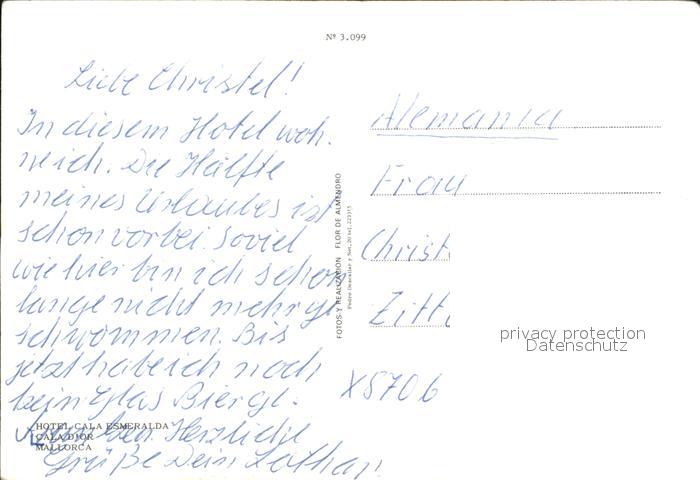 Nº 3.099
Liebe Christel!
In diesem Hotel woh-
ne ich. Die Hälfte
meines Urlaubes ist
schon vorbei. Soviel
wie hier bin ich schon
lange nicht mehr ge
schwommen. Bis
jetzt habe ich noch
kein Glas Bier ge-
Herzliche
Grüße Dein Lothar.
HOTEL CALA ESMERALDA
CALA D'OR
MALLORCA
FOTOS Y REALIZACION FLOR DE ALMENDRO
Alemania
Frau
Christ
Zitt
X5706
privacy protection
Datenschutz